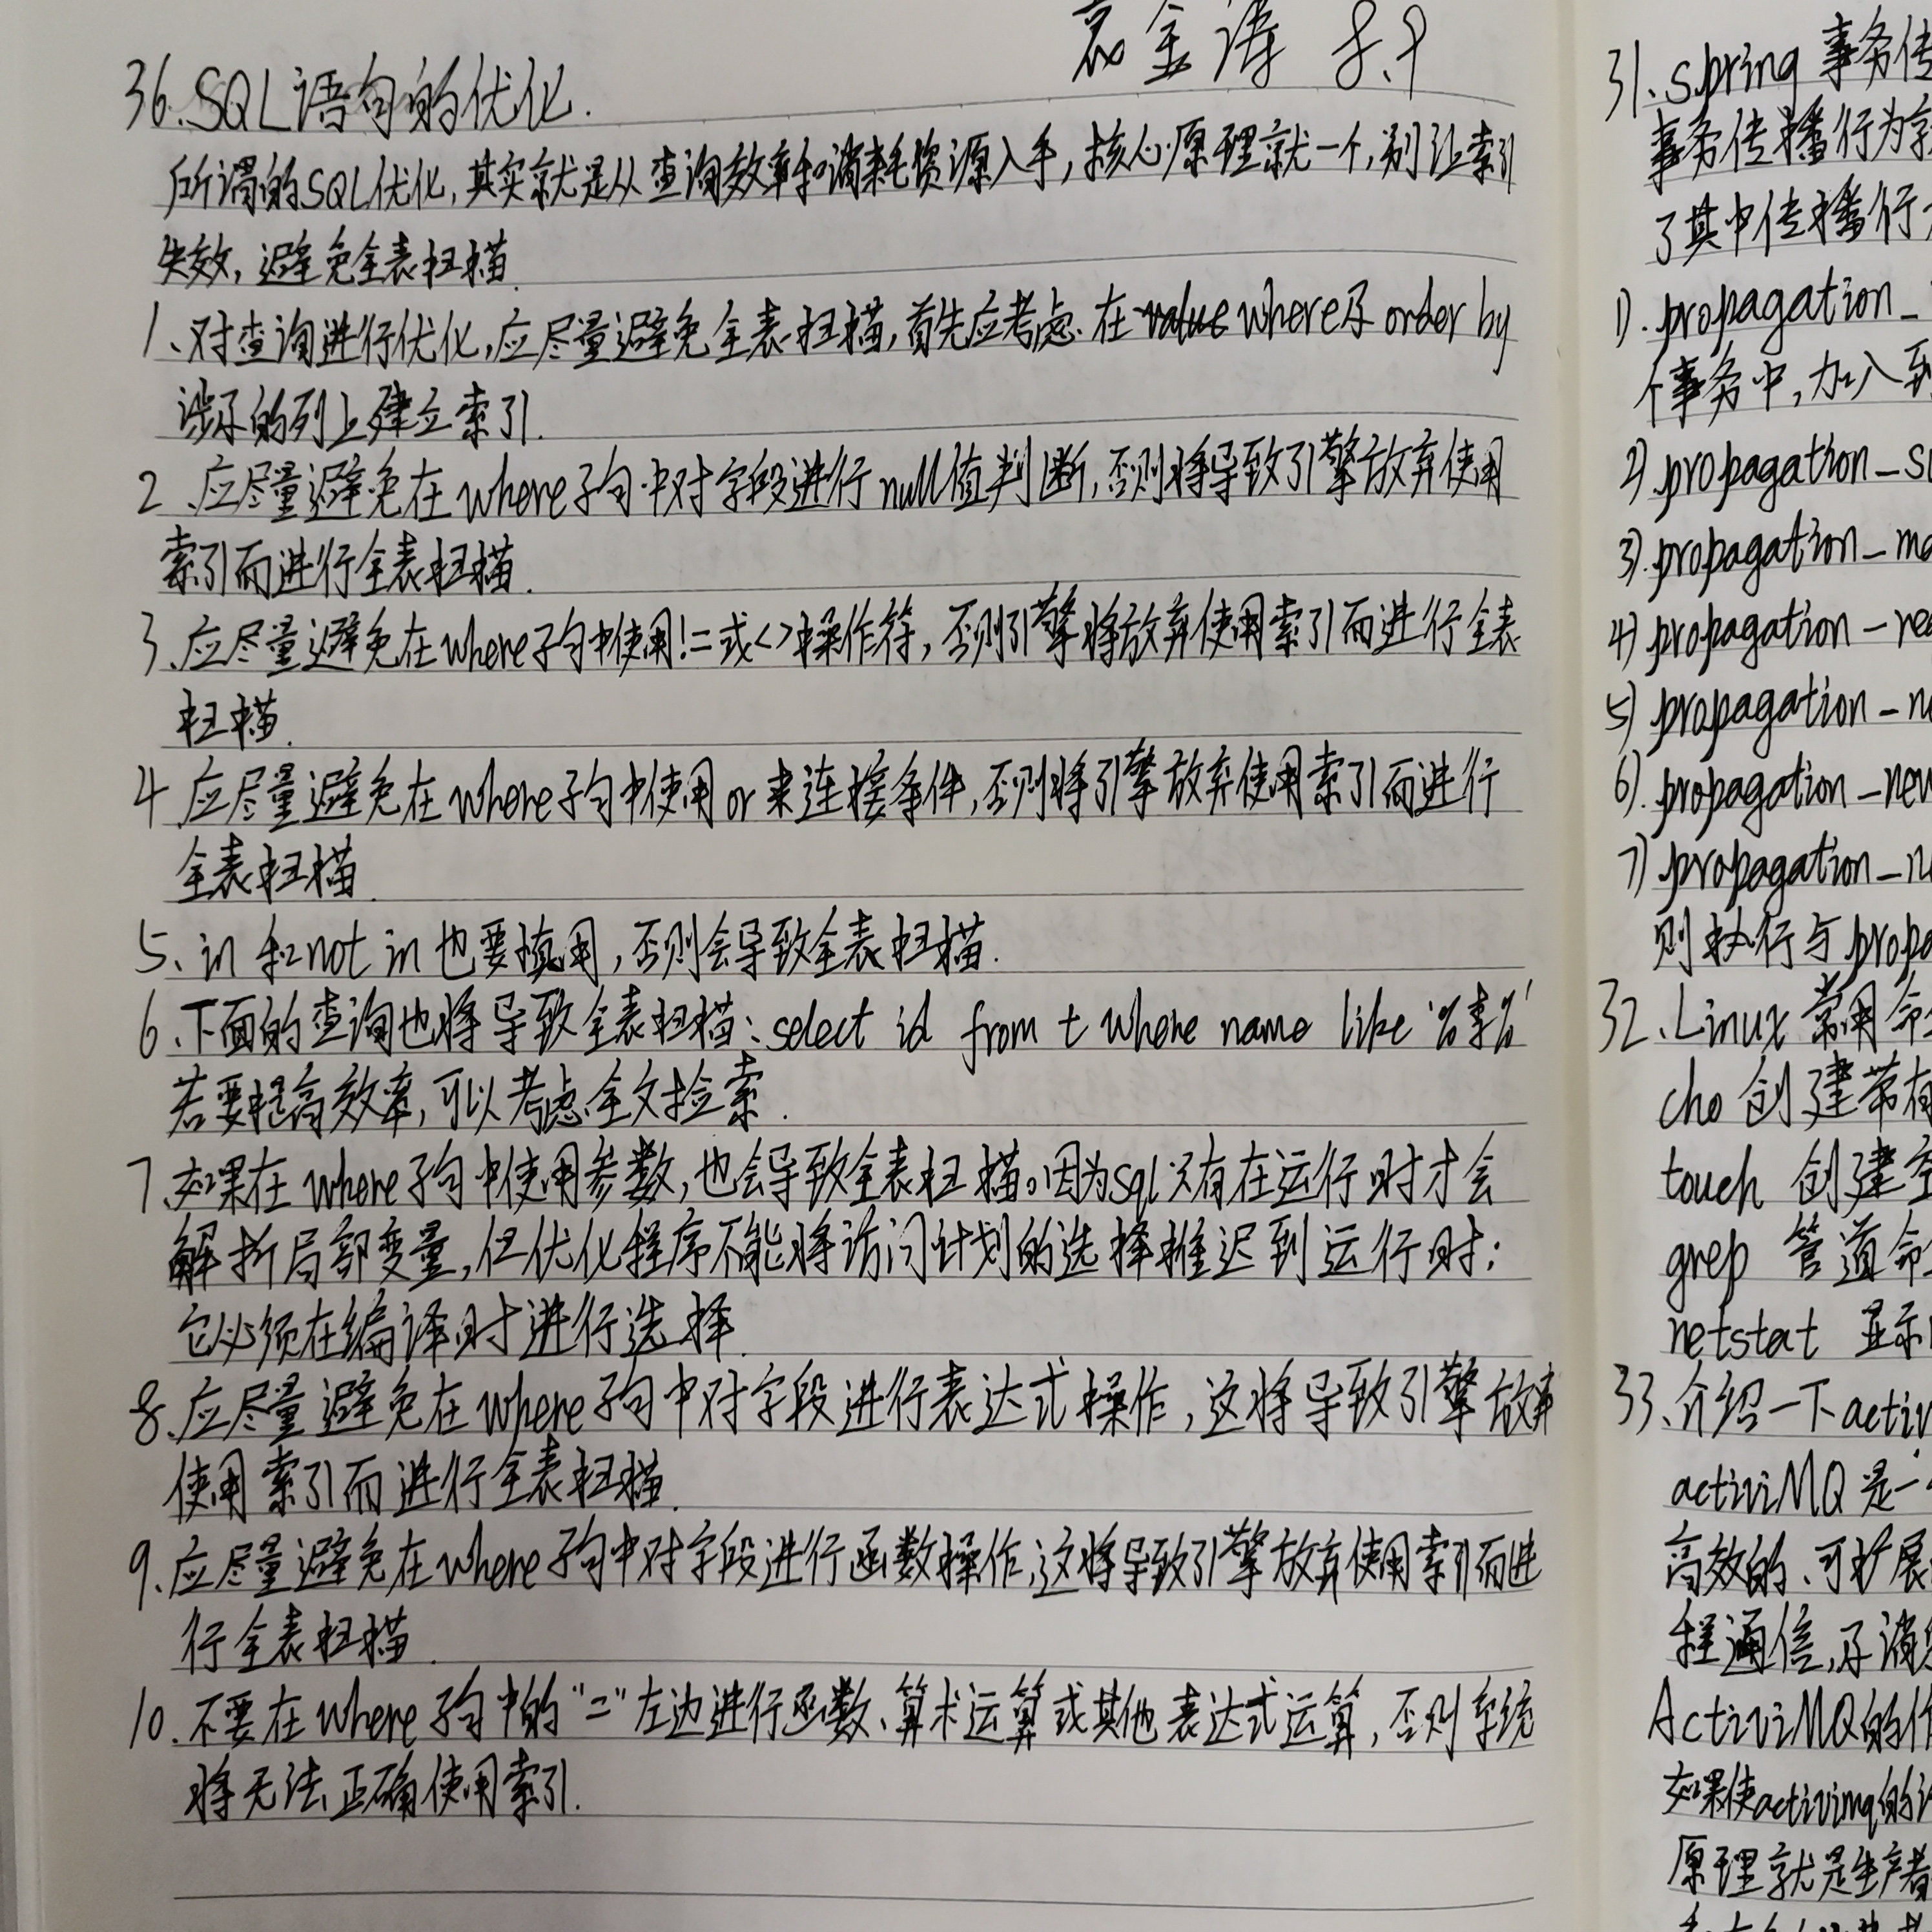 金涛 8.9
36.SQL语句的优化.
所谓的SQL优化,其实就是从查询效率和消耗资源入手,核心原理就一个,别让索引
失效,避免全表扫描.
1、对查询进行优化,应尽量避免全表扫描,首先应考虑.在value where及order by
涉及的列上建立索引.
2、应尽量避免在where子句中对字段进行null值判断,否则将导致引擎放弃使用
索引而进行全表扫描.
3、应尽量避免在where子句中使用!=或<>操作符,否则引擎将放弃使用索引而进行全表
扫描.
4 应尽量避免在where子句中使用or来连接条件,否则将引擎放弃使用索引而进行
全表扫描.
5、in和not in也要慎用,否则会导致全表扫描.
6、下面的查询也将导致全表扫描:select id from t where name like '%李%'
若要提高效率,可以考虑全文检索.
7、如果在where子句中使用参数,也会导致全表扫描。因为sql只有在运行时才会
解析局部变量,但优化程序不能将访问计划的选择推迟到运行时;
它必须在编译时进行选择.
8、应尽量避免在where子句中对字段进行表达式操作,这将导致引擎放弃
使用索引而进行全表扫描.
9、应尽量避免在where子句中对字段进行函数操作,这将导致引擎放弃使用索引而进
行全表扫描.
10.不要在where子句中的"="左边进行函数、算术运算或其他表达式运算,否则系统
将无法正确使用索引.
31.spring事务传
事务传播行为就
了其中传播行
1).propagation_
个事务中,加入到
2).propagation_su
3).propagation_ma
4)propagation_re
5)propagation_n
6).propagation_new
7)propagation_n
则执行与propa
32、Linux常用命
cho 创建带有
touch 创建空
grep 管道命
netstat 显示
33、介绍一下activ
activiMQ是一
高效的、可扩展
程通信,及消
ActiviMQ的作
如果使activimq的
原理就是生产者